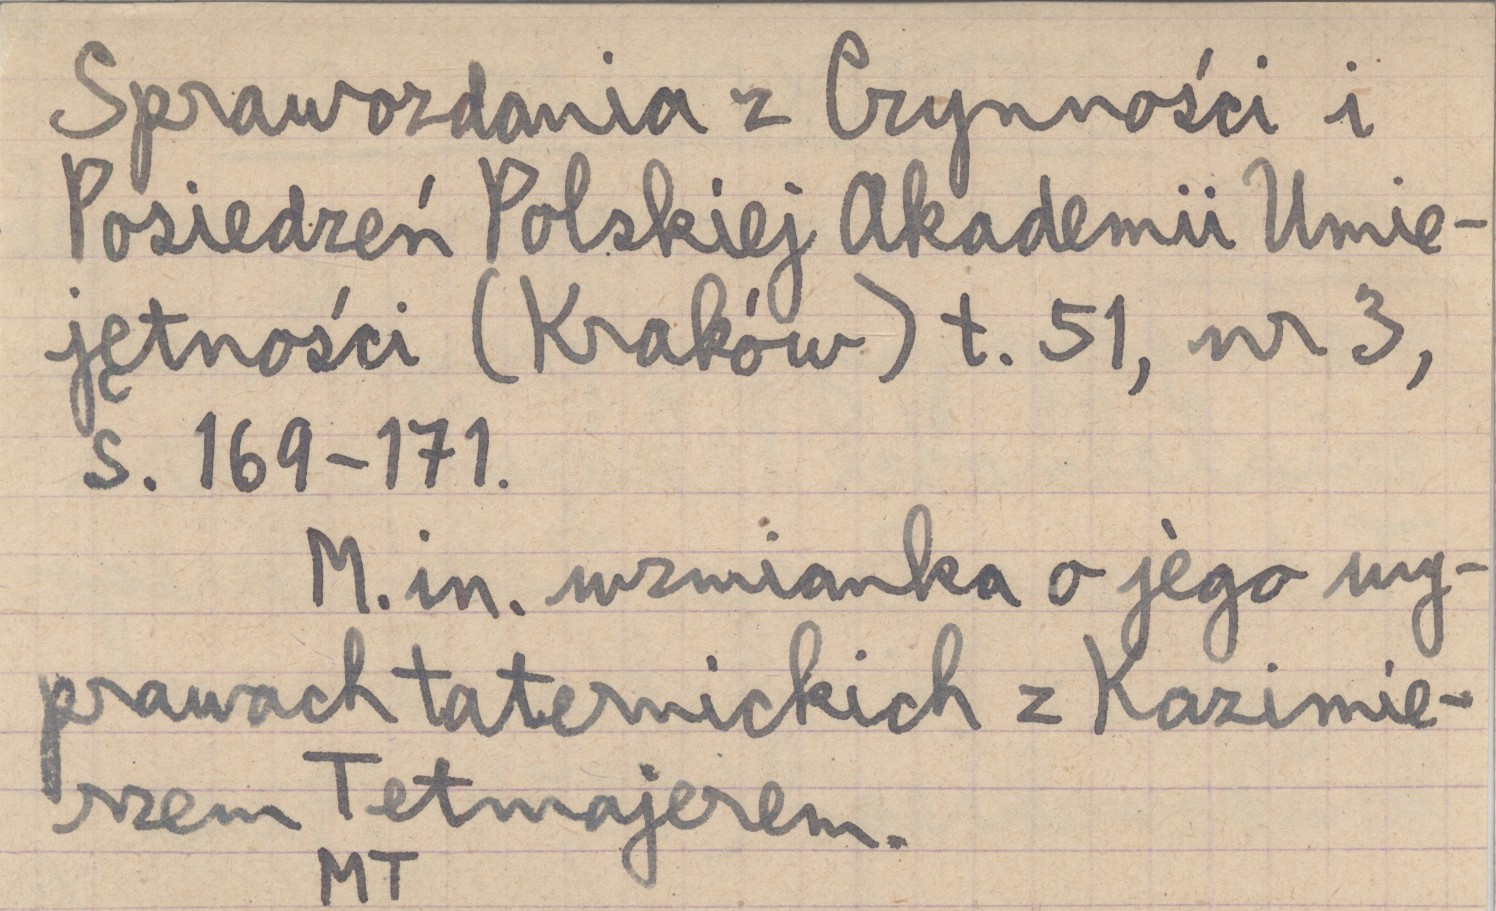 Sprawozdania z Czynności i
Posiedzeń Polskiej Akademii Umie-
jętności (Kraków) t. 51, nr 3,
s. 169-171.
M. in. wzmianka o jego wy-
prawach taternickich z Kazimie-
rzem Tetmajerem.
MT